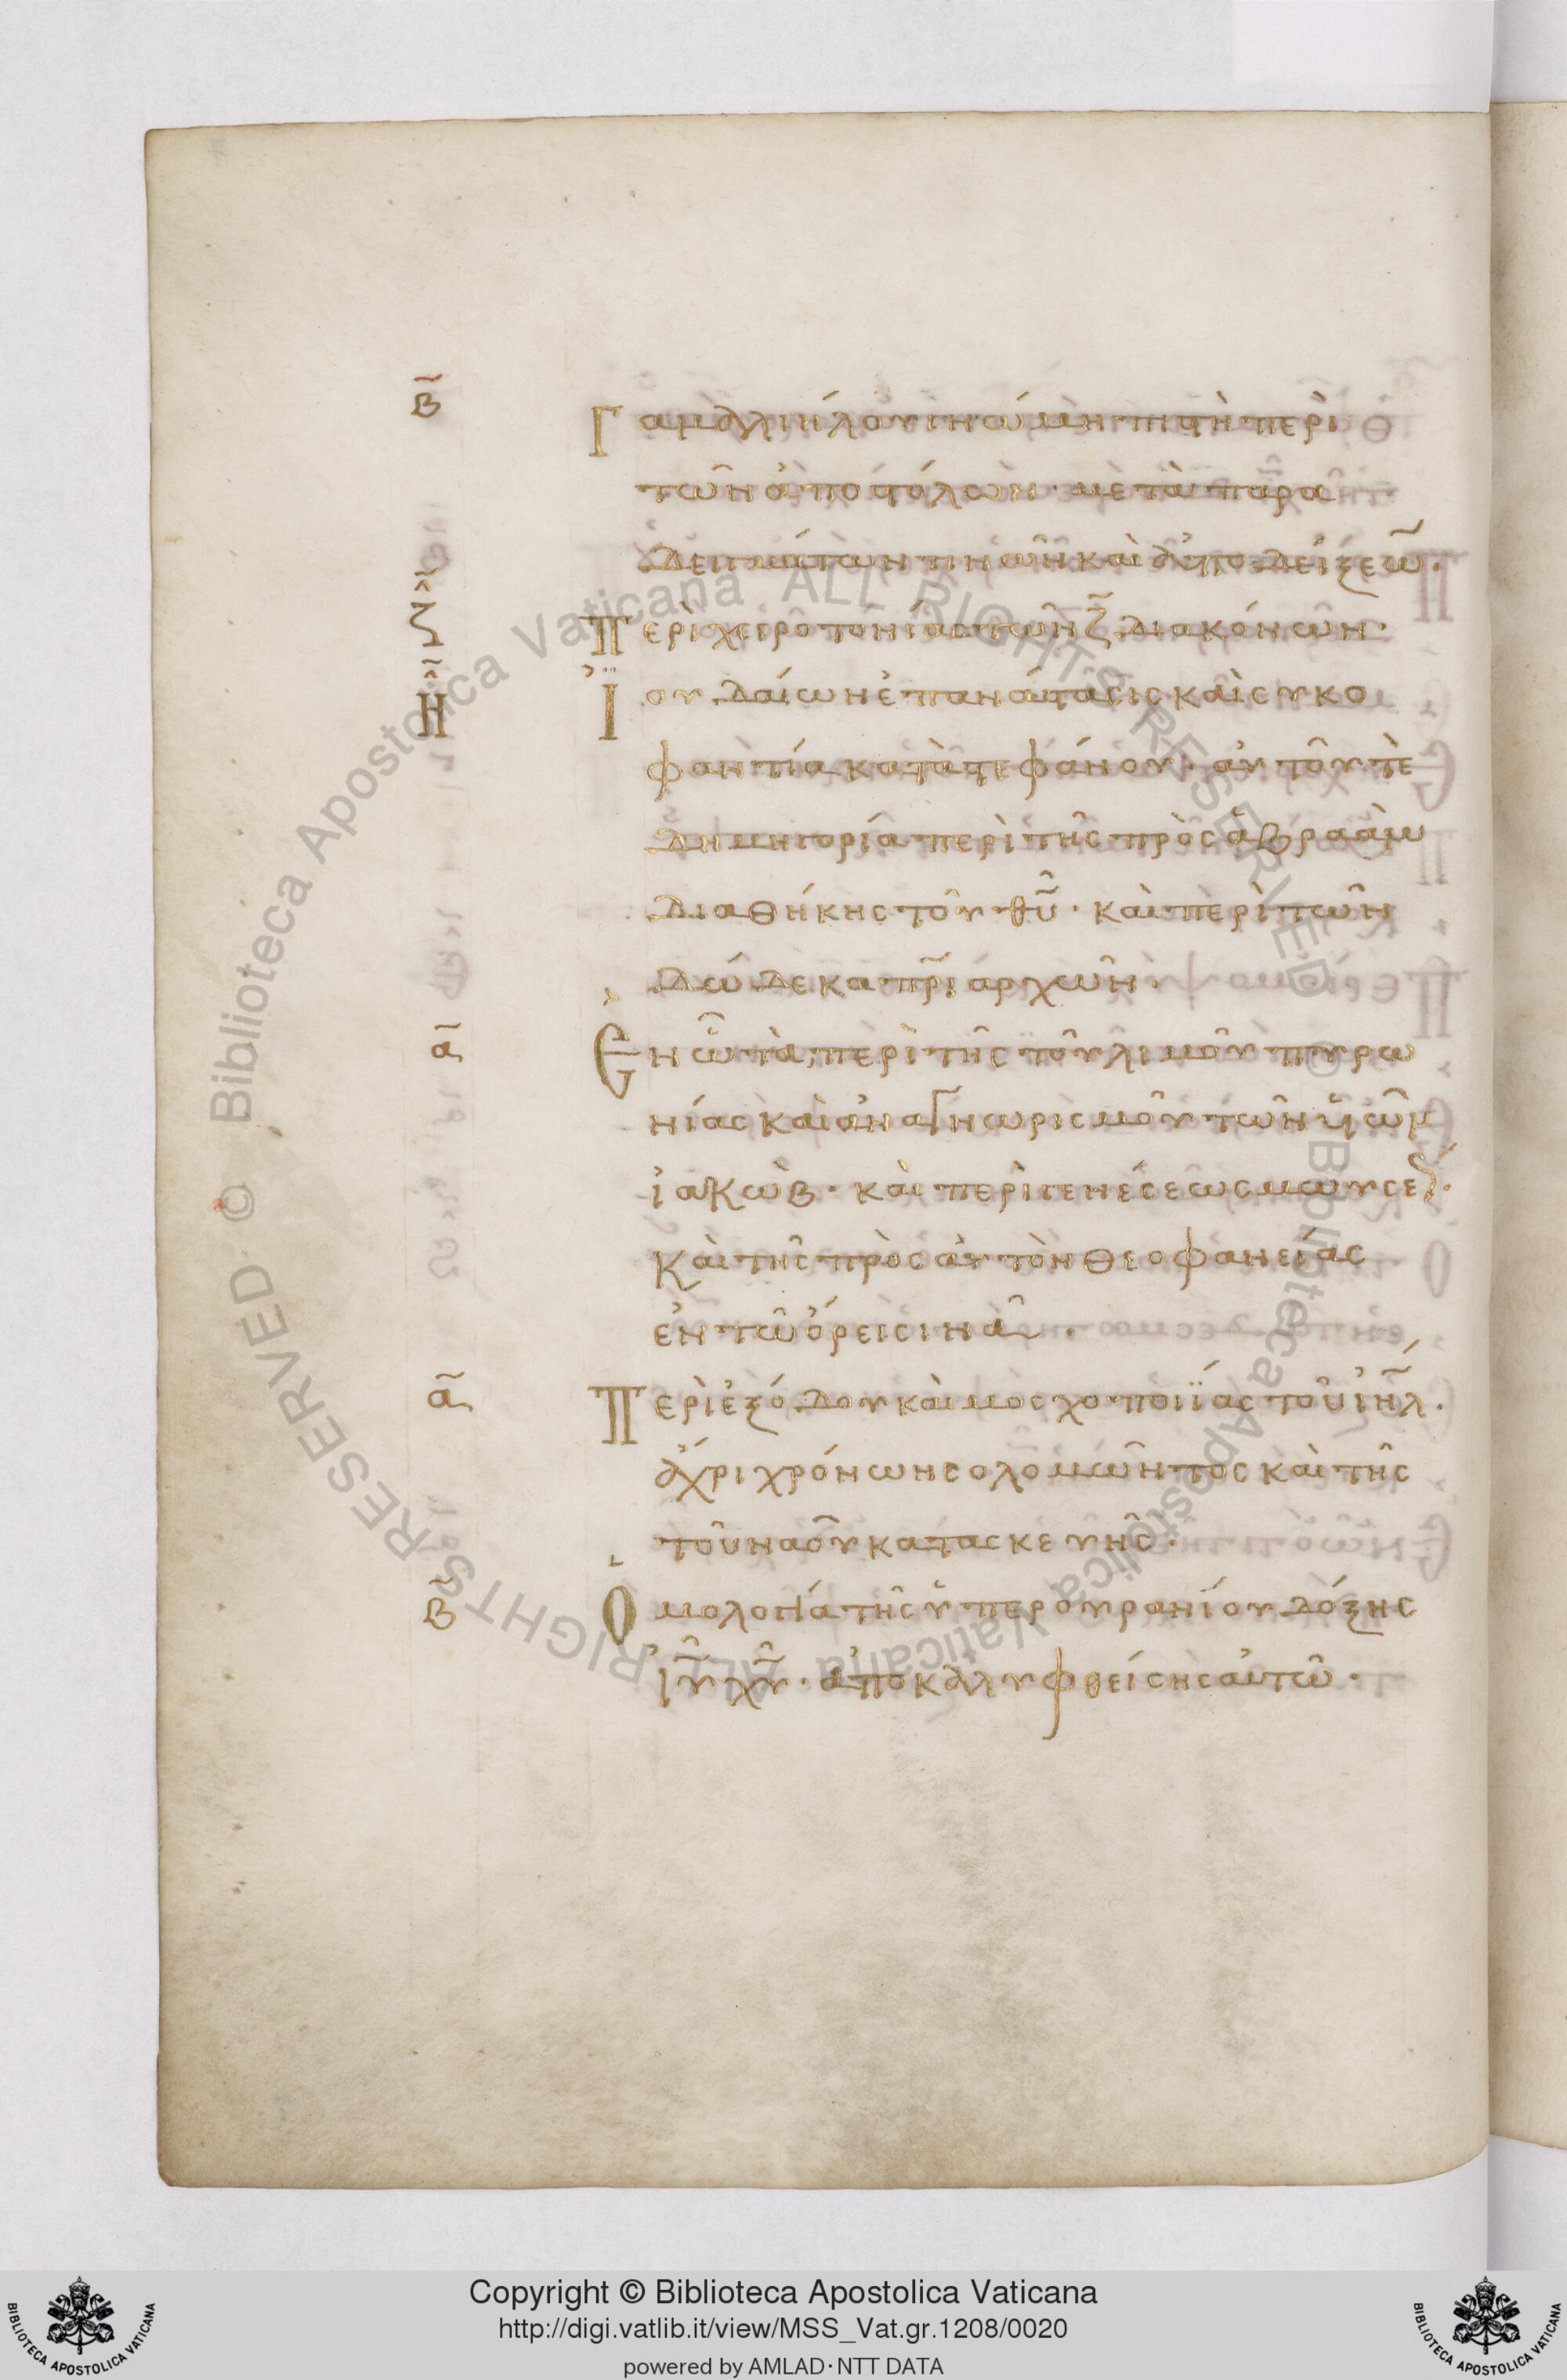 β̃ Γαμαλιὴλου γνώμη πιστὴ περὶ
τῶν ἀποστόλων· μετὰ παρα
δειγμάτων τινῶν καὶ ἀποδείξεω̃·
ζ̃ Περὶ χειροτονίας τῶν ζ̃ διακόνων·
η̃ Ἰουδαίων ἐπανάστασις καὶ συκο
φαντία κατὰ στεφάνου· αὐτοῦ τὲ
δημηγορία περὶ τῆς πρὸς ἀβραὰμ
διαθήκης τοῦ θῡ· καὶ περὶ τῶν
δώδεκα πρ̄ιαρχῶν·
α̃ Ἐν ὧ τὰ περὶ τῆς τοῦ λιμοῦ πυρω
νίας καὶ ἀναγνωρισμοῦ τῶν ϋἱῶν
ἰακώβ· καὶ περὶ γενέσεως μωυσέ
καὶ τῆς πρὸς αὐτὸν θεοφανείας
ἐν τῶ ὄρει σινᾶ·
α̃ Περὶ ἐξόδου καὶ μοσχοποιΐας τοῦ ἰη̄λ·
ἄχρι χρόνων σολομῶντος καὶ τῆς
τοῦ ναοῦ κατασκευῆς·
β̃ Ὁμολογία τῆς ὑπερουρανίου δόξης
ἰῡ χῡ· ἀποκαλυφθείσης αὐτῶ·
Copyright © Biblioteca Apostolica Vaticana
http://digi.vatlib.it/view/MSS_Vat.gr.1208/0020
powered by AMLAD·NTT DATA
BIBLIOTECA APOSTOLICA VATICANA
BIBLIOTECA APOSTOLICA VATICANA
© Biblioteca Apostolica Vaticana ALL RIGHTS RESERVED
© Biblioteca Apostolica Vaticana ALL RIGHTS RESERVED